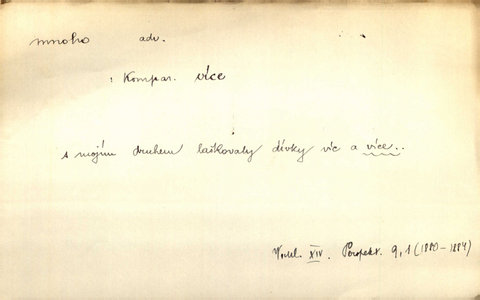 mnoho adv.
: Kompar. více
s mojím druhem laškovaly dívky víc a více..
XIV. Perspekt. 9,1 (1880–1884)